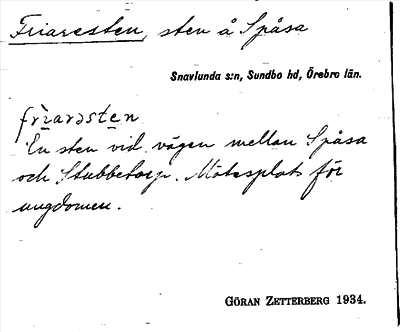 Friaresten, sten å Spåsa
Snavlunda s:n, Sundbo hd, Örebro län.
frìarəstèn
En sten vid vägen mellan Spåsa
och Stubbetorp. Mötesplats för
ungdomen.
GÖRAN ZETTERBERG 1934.